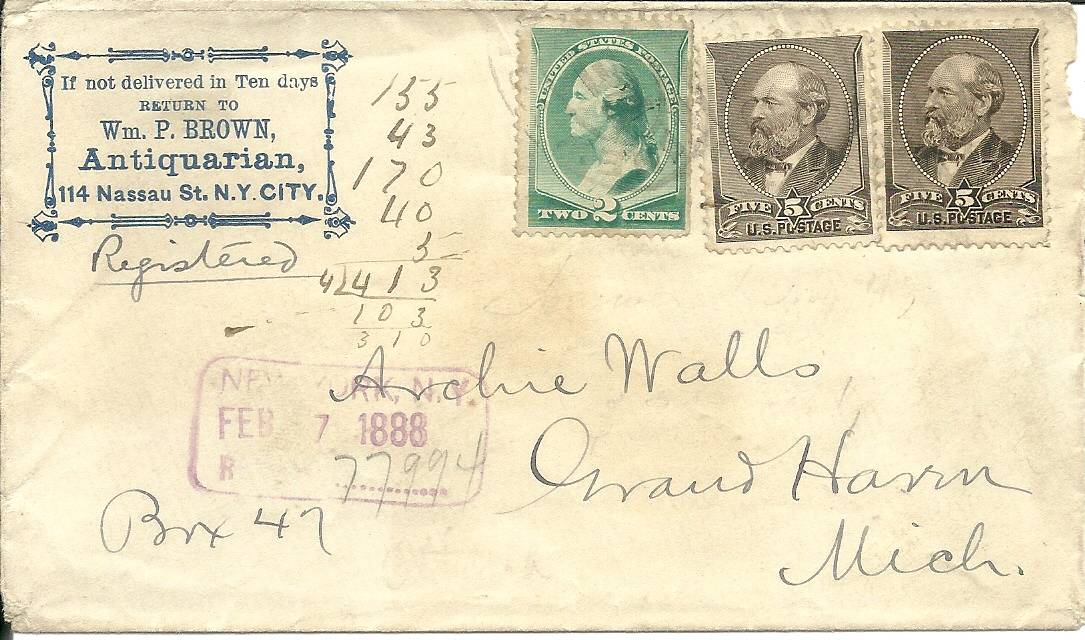 If not delivered in Ten days
RETURN TO
Wm. P. BROWN,
Antiquarian,
114 Nassau St. N.Y. CITY.
Registered
155
43
170
40
5
4 413
103
310
UNITED STATES POSTAGE
TWO 2 CENTS
FIVE 5 CENTS
U.S. POSTAGE
FIVE 5 CENTS
U.S. POSTAGE
NEW YORK, N.Y.
FEB 7 1888
R
77994
Archie Walls
Grand Haven
Mich.
Box 47